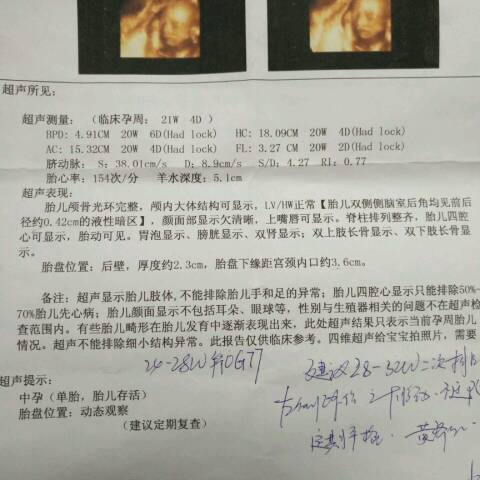 超声所见：
超声测量：（临床孕周： 21W 4D ）
BPD: 4.91CM 20W 6D(Had lock) HC: 18.09CM 20W 4D(Had lock)
AC: 15.32CM 20W 4D(Had lock) FL: 3.27 CM 20W 2D(Had lock)
脐动脉： S: 38.01cm/s D: 8.9cm/s S/D: 4.27 RI: 0.77
胎心率：154次/分 羊水深度：5.1cm
超声表现：
胎儿颅骨光环完整，颅内大体结构可显示，LV/HW正常【胎儿双侧侧脑室后角均见前后
径约0.42cm的液性暗区】，颜面部显示欠清晰，上嘴唇可显示。脊柱排列整齐，胎儿四腔
心可显示，胎动可见。胃泡显示、膀胱显示、双肾显示；双上肢长骨显示、双下肢长骨显
示。
胎盘位置：后壁，厚度约2.3cm，胎盘下缘距宫颈内口约3.6cm。
备注：超声显示胎儿肢体,不能排除胎儿手和足的异常；胎儿四腔心显示只能排除50%-
70%胎儿先心病；胎儿颜面显示不包括耳朵、眼球等，性别与生殖器相关的问题不在超声检
查范围内。有些胎儿畸形在胎儿发育中逐渐表现出来，此处超声结果只表示当前孕周胎儿
情况。超声不能排除细小结构异常。此报告仅供临床参考。四维超声给宝宝拍照片，需要
24-28W OGTT
建议28-32W二次排
超声提示：
中孕（单胎，胎儿存活）
胎盘位置：动态观察
（建议定期复查）